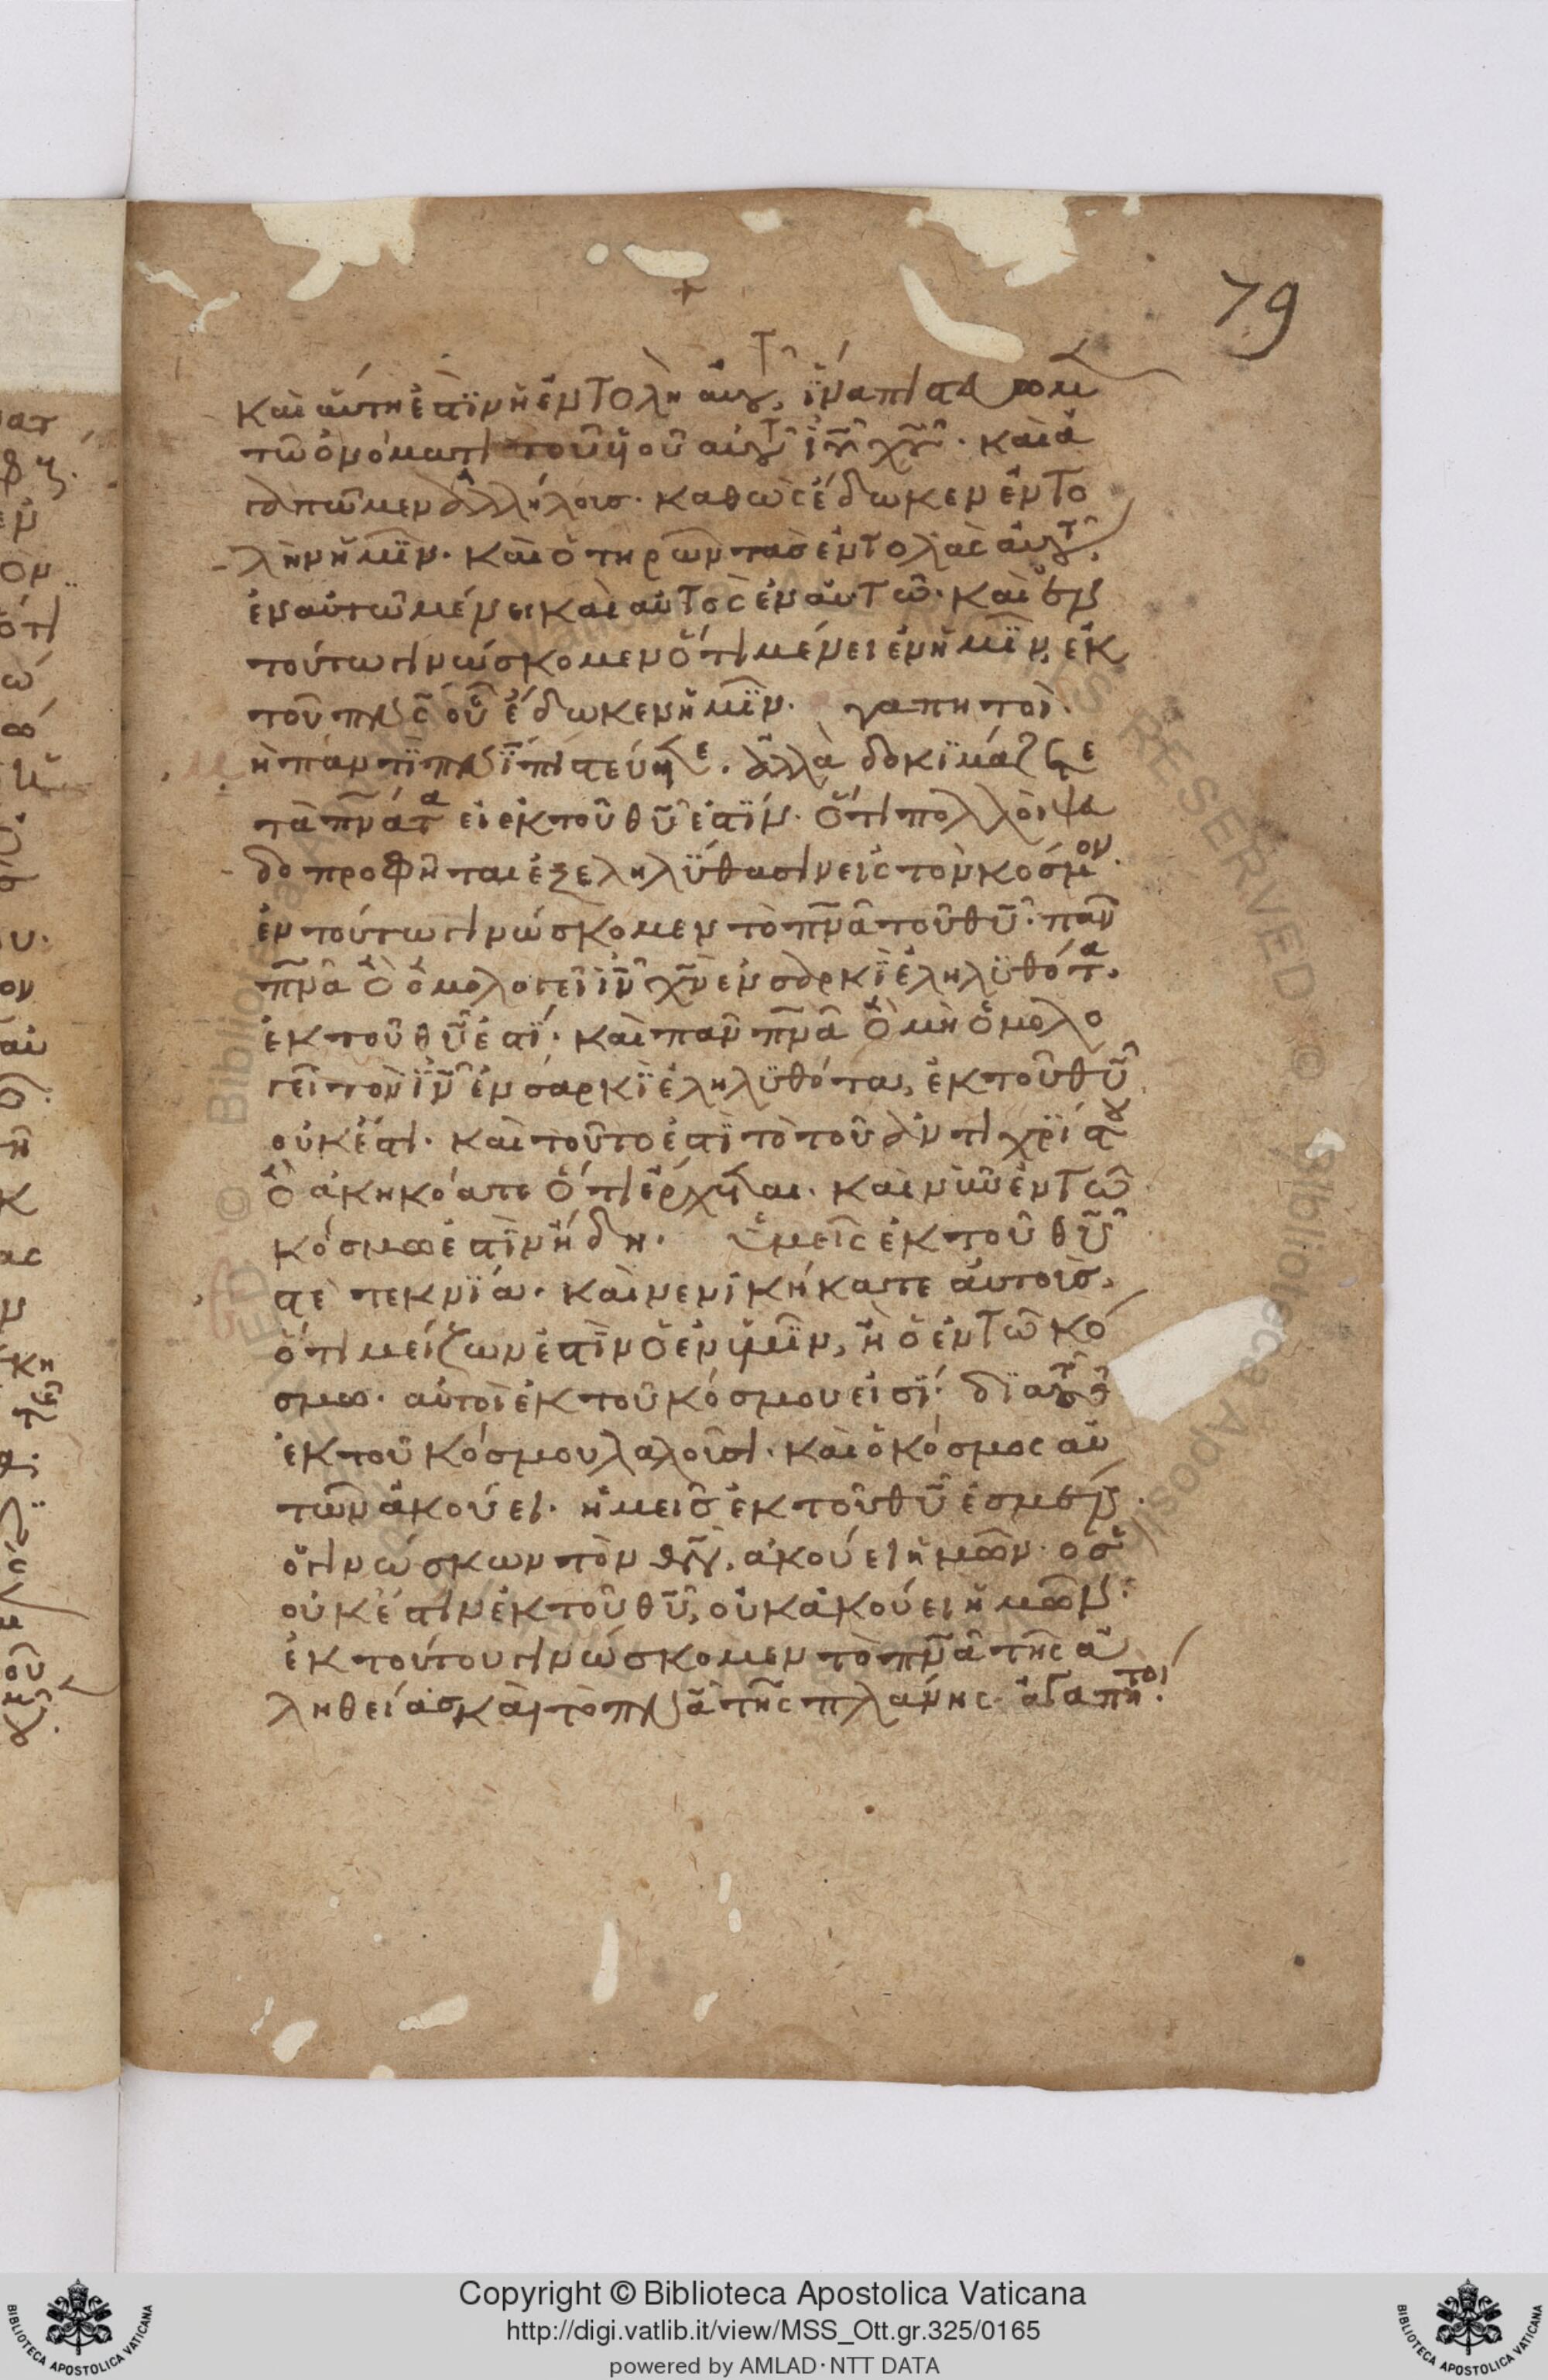 79
καὶ αὕτη ἐστὶν ἡ ἐντολὴ αὐτοῦ, ἵνα πιστεύσωμεν
τῶ ὀνόματι τοῦ υἱοῦ αὐτοῦ ἰῦ χῦ. καὶ ἀ
γαπῶμεν ἀλλήλοις. καθὼς ἔδωκεν ἐντο
λὴν ἡμῖν. καὶ ὁ τηρῶν τὰς ἐντολὰς αὐτοῦ,
ἐν αὐτῶ μένει καὶ αὐτὸς ἐν αὐτῶ. καὶ ἐν
τούτω γινώσκομεν ὅτι μένει ἐν ἡμῖν, ἐκ
τοῦ πνς οὗ ἔδωκεν ἡμῖν. γαπητοὶ.
μὴ παντὶ πνι πιστεύητε. ἀλλὰ δοκιμάζετε
τὰ πνάτα εἰ ἐκ τοῦ θῦ ἐστίν. ὅτι πολλοὶ ψευ
δοπροφῆται ἐξεληλύθασιν εἰς τὸν κόσμον.
ἐν τούτω γινώσκομεν τὸ πνᾶ τοῦ θῦ. πᾶν
πνᾶ ὃ ὁμολογεῖ ἰν χν ἐν σαρκὶ ἐληλυθότα.
ἐκ τοῦ θῦ ἐστί. καὶ πᾶν πνᾶ ὃ μὴ ὁμολο
γεῖ τὸν ἰν ἐν σαρκὶ ἐληλυθότα, ἐκ τοῦ θῦ
οὐκ ἔστι. καὶ τοῦτο ἐστὶ τὸ τοῦ ἀντιχρίστου
ὃ ἀκηκόατε ὅτι ἔρχεται. καὶ νῦν ἐν τῶ
κόσμω ἐστὶν ἤδη. ὑμεῖς ἐκ τοῦ θῦ
στὲ τεκνία. καὶ νενικήκατε αὐτοὺς,
ὅτι μείζων ἐστὶν ὁ ἐν ὑμῖν, ἢ ὁ ἐν τῶ κό
σμω. αὐτοὶ ἐκ τοῦ κόσμου εἰσί. διατοῦτο
ἐκ τοῦ κόσμου λαλοῦσι. καὶ ὁ κόσμος αὐ
τῶν ἀκούει. ἡμεῖς ἐκ τοῦ θῦ ἐσμεν.
ὁ γινώσκων τὸν θν, ἀκούει ἡμῶν. ὃς
οὐκ ἔστιν ἐκ τοῦ θῦ, οὐκ ἀκούει ἡμῶν.
ἐκ τούτου γινώσκομεν τὸ πνᾶ τῆς ἀ
ληθείας καὶ τὸ πνᾶ τῆς πλάνης. ἀγαπητοί.
Copyright © Biblioteca Apostolica Vaticana
http://digi.vatlib.it/view/MSS_Ott.gr.325/0165
powered by AMLAD·NTT DATA
BIBLIOTECA APOSTOLICA VATICANA
BIBLIOTECA APOSTOLICA VATICANA